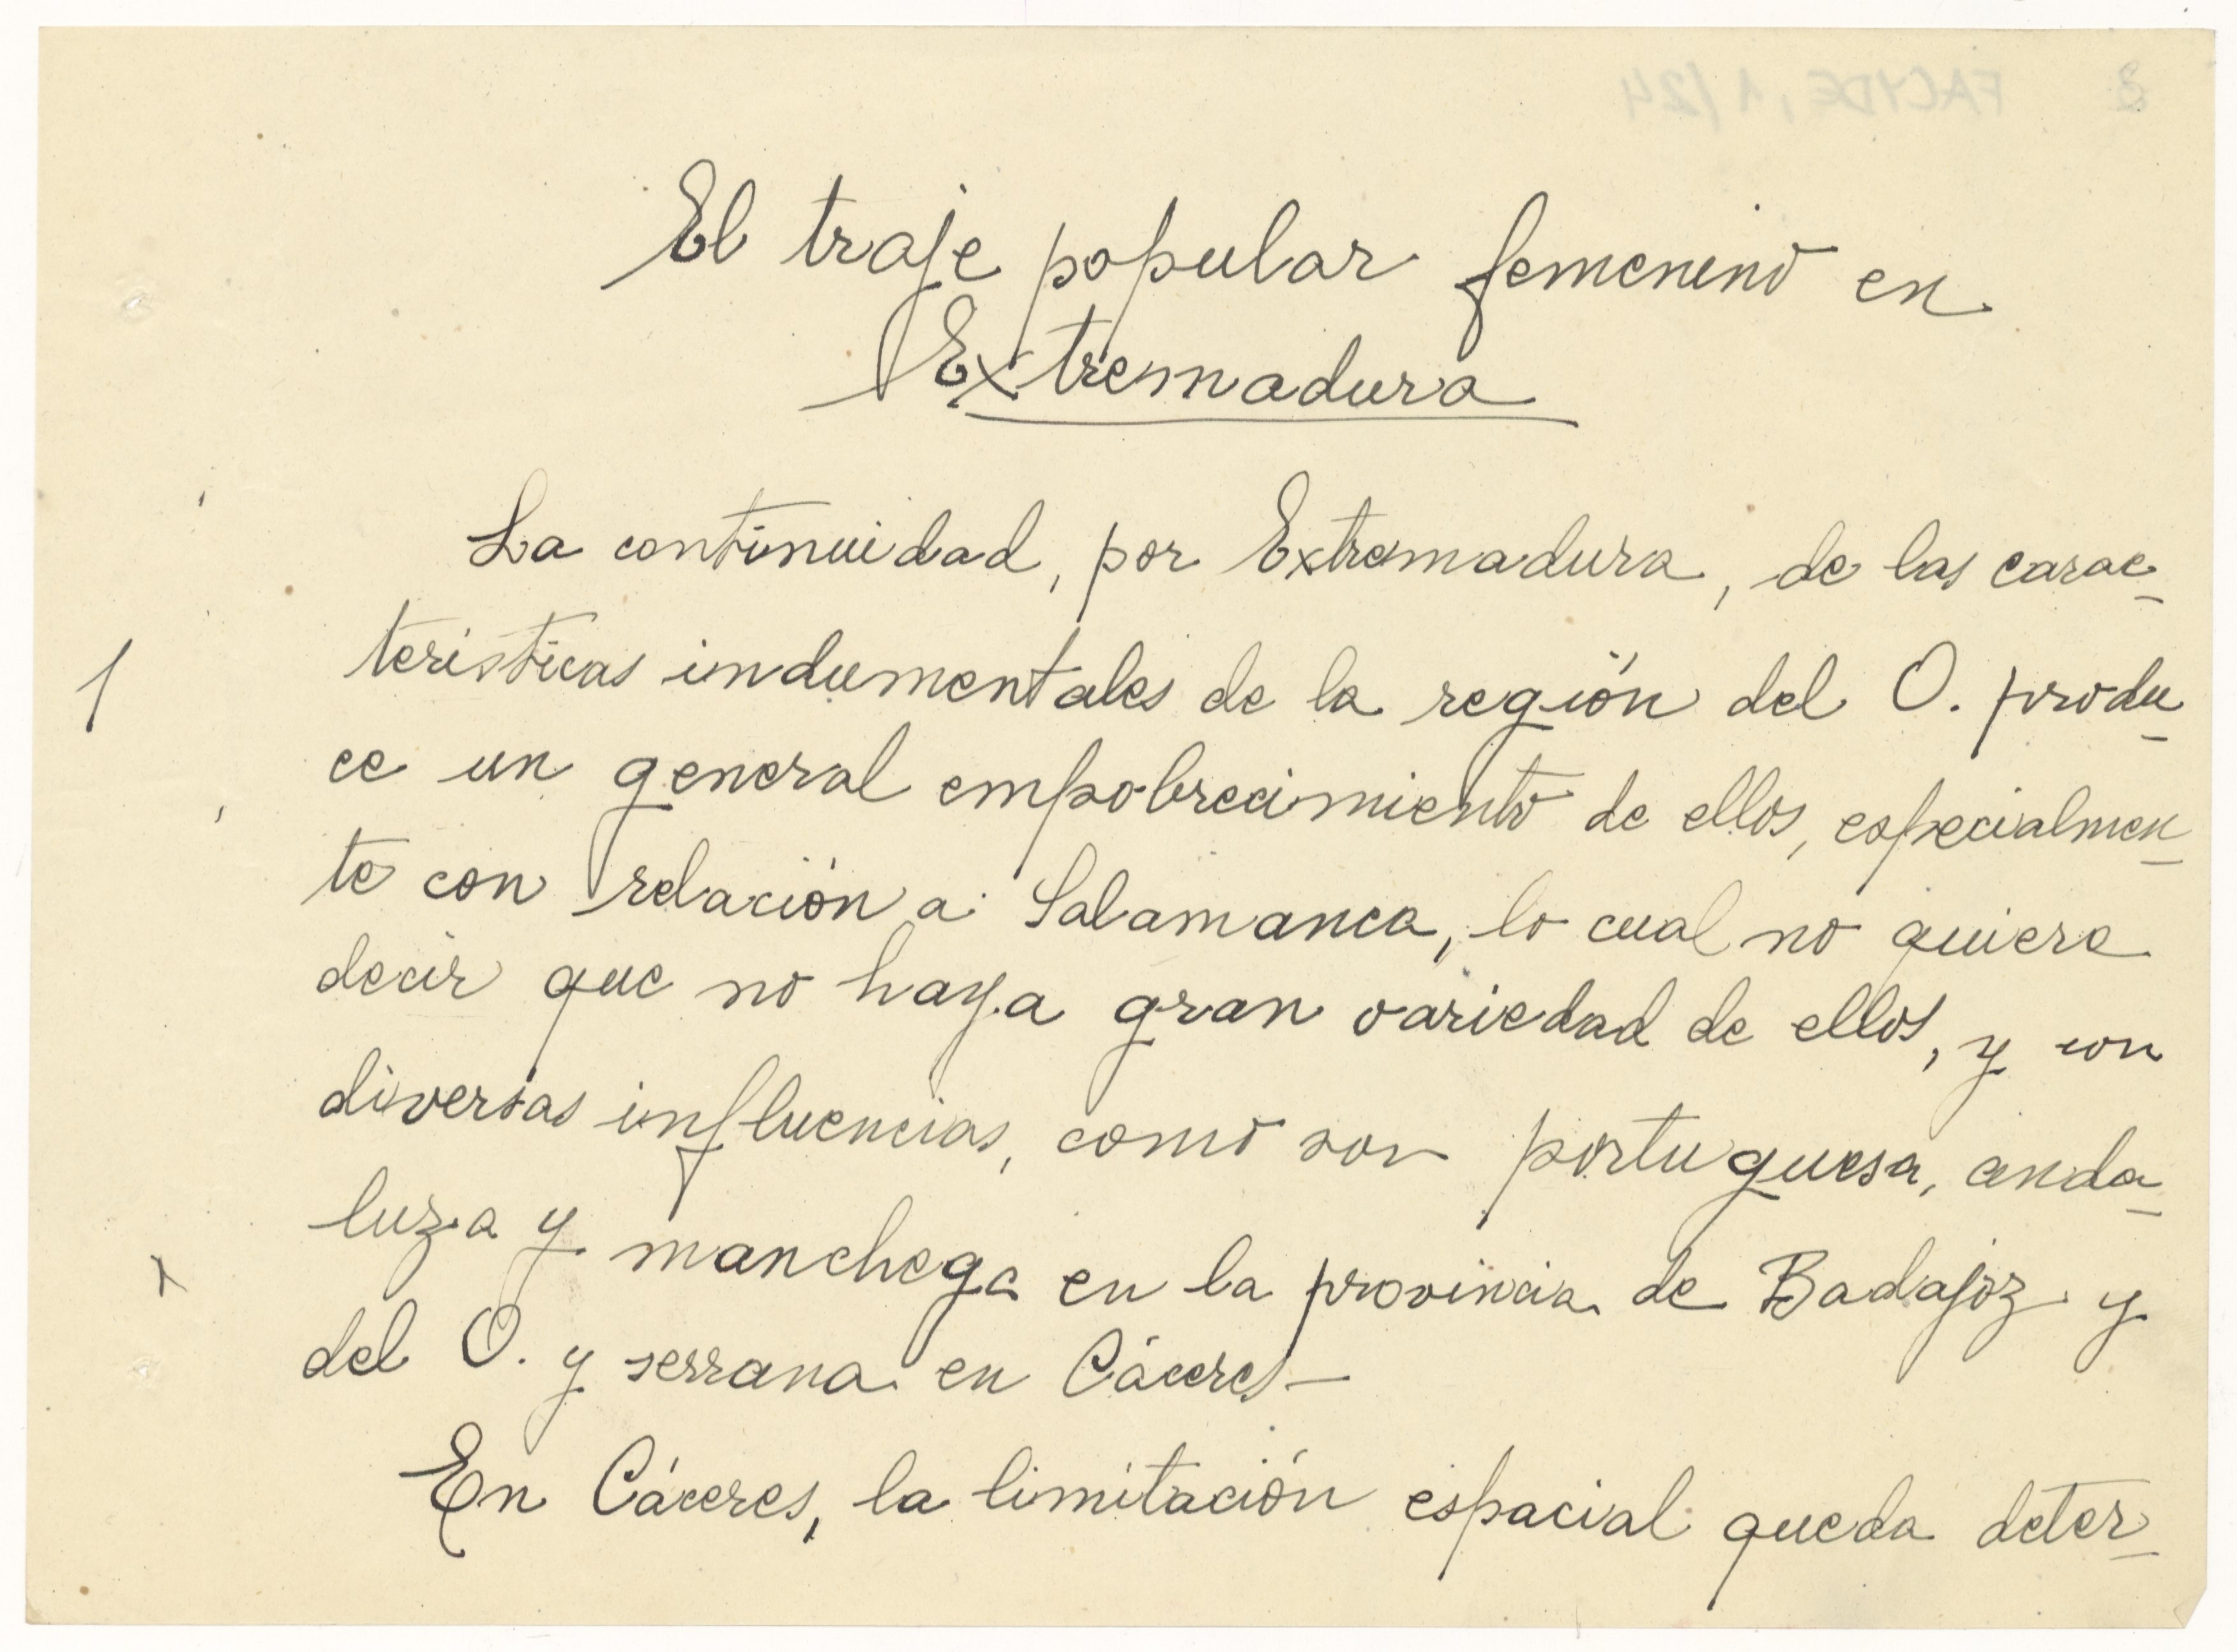 El traje popular femenino en
Extremadura
La continuidad, por Extremadura, de las carac-
terísticas indumentales de la región del O. produ-
1
ce un general empobrecimiento de ellos, especialmen-
te con relación a Salamanca, lo cual no quiere
decir que no haya gran variedad de ellos, y con
diversas influencias, como son portuguesa, anda-
luza y manchega en la provincia de Badajoz y
x
del O. y serrana en Cáceres—
En Cáceres, la limitación espacial queda deter-
FACYDE, 1/24